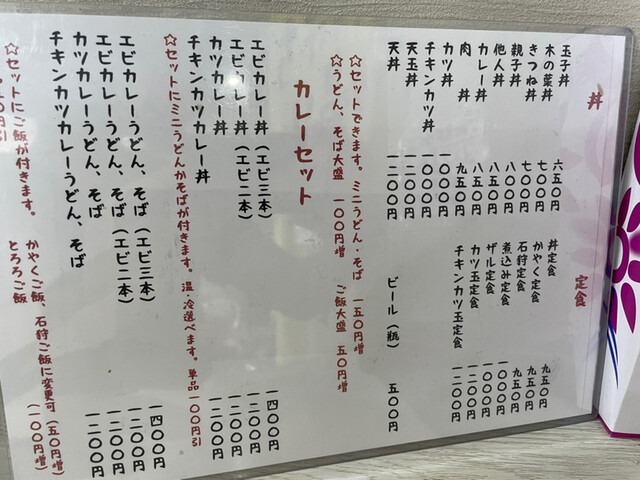 丼
玉子丼 六五〇円
木の葉丼 七〇〇円
きつね丼 七〇〇円
親子丼 八〇〇円
他人丼 八五〇円
カレー丼 八五〇円
肉丼 九五〇円
カツ丼 一〇〇〇円
チキンカツ丼 一〇〇〇円
天玉丼 一二〇〇円
天丼 一二〇〇円
定食
丼定食 九五〇円
かやく定食 九五〇円
石狩定食 九五〇円
煮込み定食 一〇〇〇円
ザル定食 一〇〇〇円
カツ玉定食 一二〇〇円
チキンカツ玉定食 一二〇〇円
ビール(瓶) 五〇〇円
☆セットできます。ミニうどん・そば 一五〇円増
☆うどん、そば大盛 一〇〇円増 ご飯大盛 五〇円増
カレーセット
エビカレー丼(エビ三本) 一四〇〇円
エビカレー丼(エビ二本) 一二〇〇円
カツカレー丼 一二〇〇円
チキンカツカレー丼 一二〇〇円
☆セットにミニうどんかそばが付きます。温・冷選べます。単品一〇〇円引
エビカレーうどん、そば(エビ三本) 一四〇〇円
エビカレーうどん、そば(エビ二本) 一二〇〇円
カツカレーうどん、そば 一二〇〇円
チキンカツカレーうどん、そば 一二〇〇円
☆セットにご飯が付きます。 かやくご飯、石狩ご飯に変更可(五〇円増)
とろろご飯 (一〇〇円増)